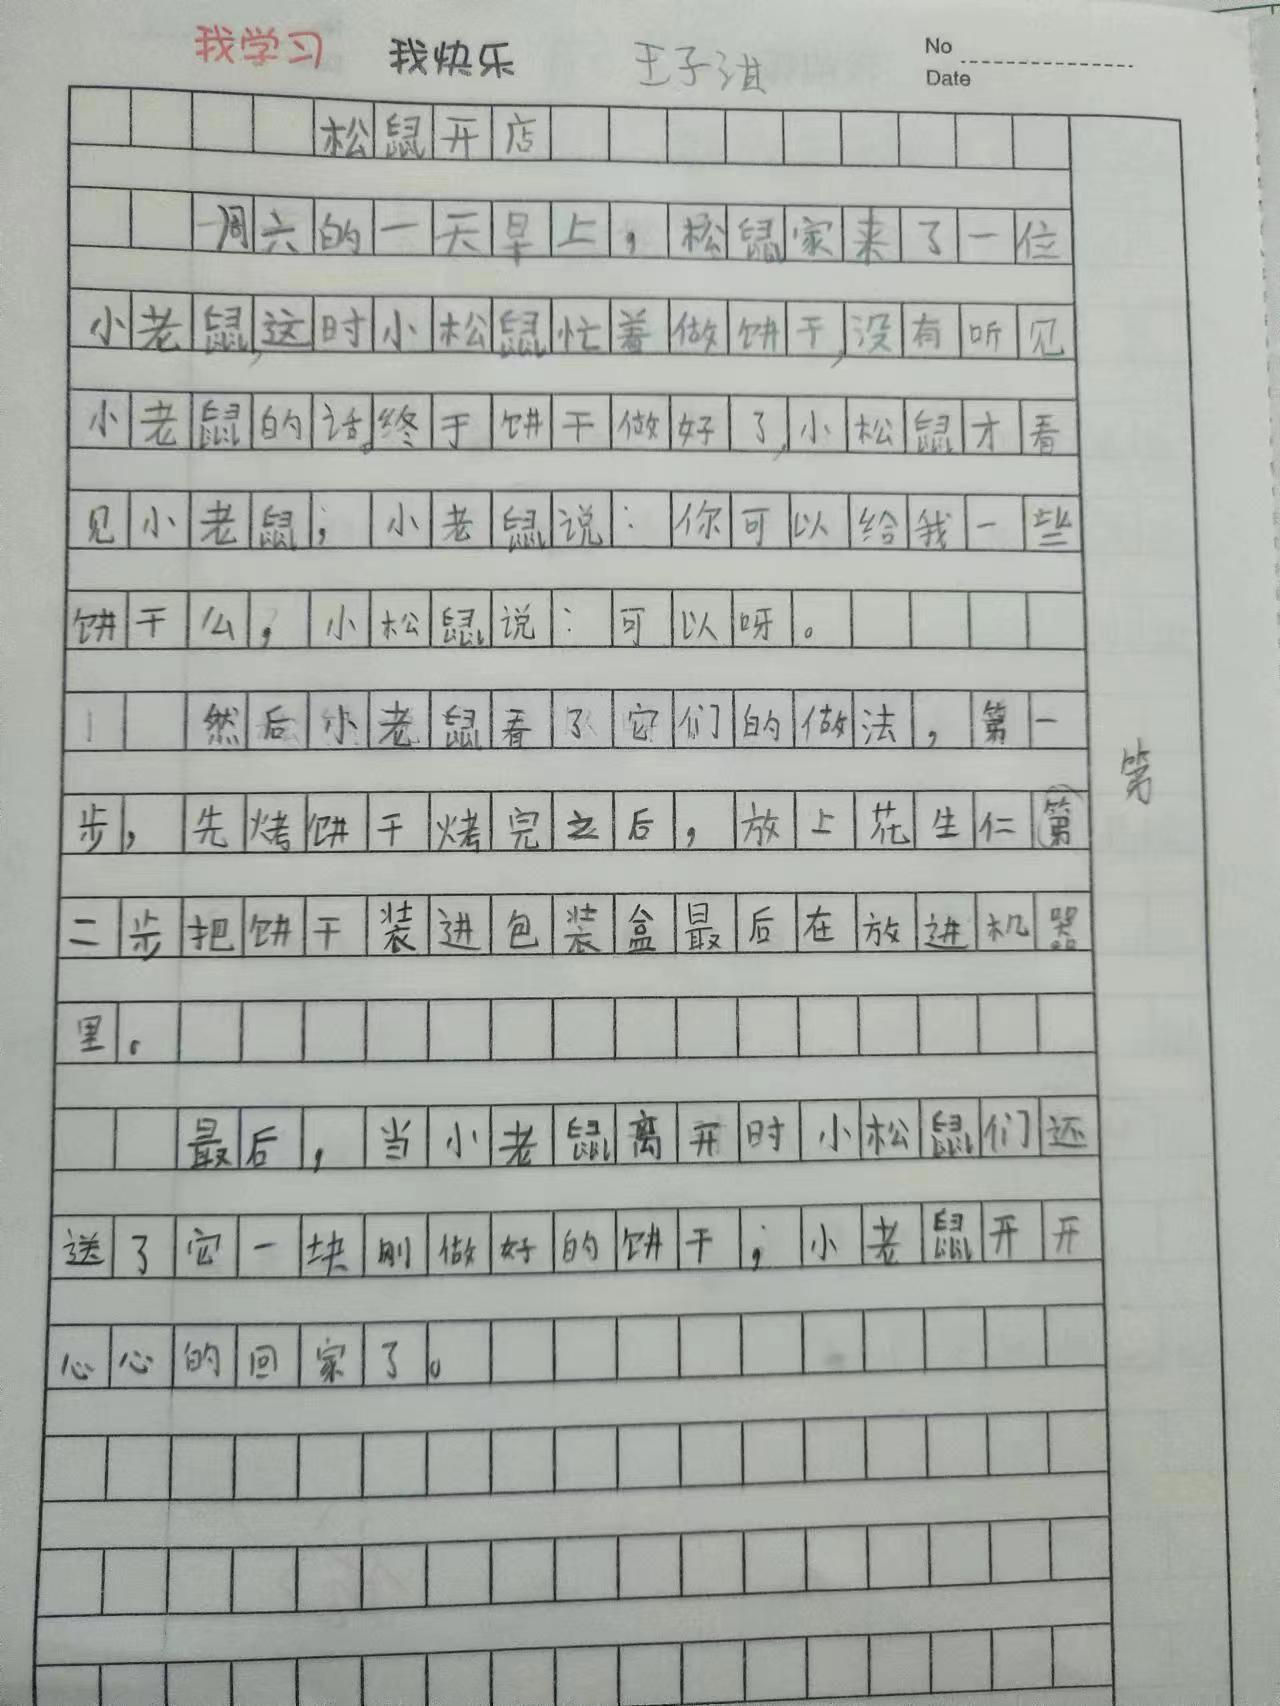 我学习 我快乐 王子淇
No
Date
松鼠开店
一周六的一天早上，松鼠家来了一位
小老鼠，这时小松鼠忙着做饼干，没有听见
小老鼠的话。终于饼干做好了，小松鼠才看
见小老鼠；小老鼠说：你可以给我一些
饼干么，小松鼠说：可以呀。
然后小老鼠看了它们的做法，第一
步，先烤饼干烤完之后，放上花生仁第
第
二步把饼干装进包装盒最后在放进机器
里。
最后，当小老鼠离开时小松鼠们还
送了它一块刚做好的饼干；小老鼠开开
心心的回家了。